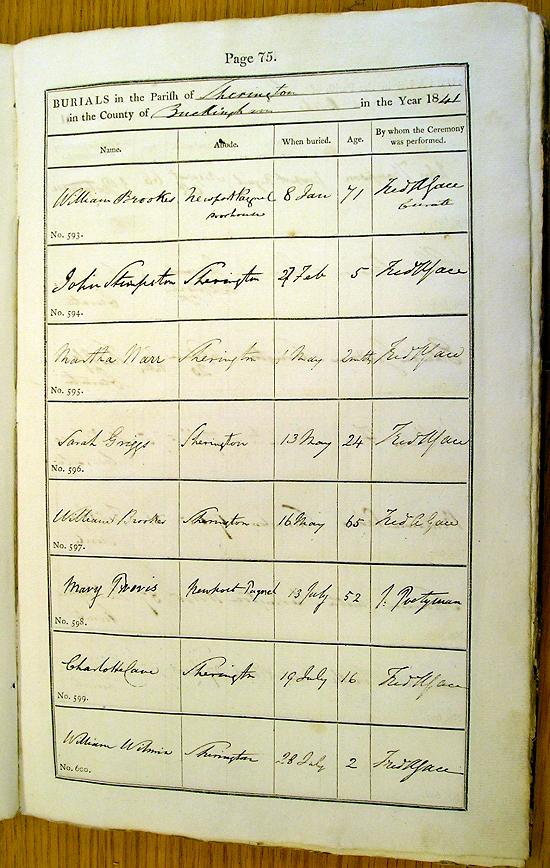 Page 75.
BURIALS in the Parish of Sherington
in the County of Buckingham in the Year 1841
Name. Abode. When buried. Age. By whom the Ceremony was performed.
William Brookes Newport Pagnel 8 Jan 71 Fred A Gace
workhouse Curate
No. 593.
John Stimpston Sherington 27 Feb 5 Fred A Gace
No. 594.
Martha Warr Sherington May 2 mths Fred A Gace
No. 595.
Sarah Griggs Sherington 13 May 24 Fred A Gace
No. 596.
William Brookes Sherington 16 May 65 Fred A Gace
No. 597.
Mary Newport Pagnel 13 July 52 J.
No. 598.
Charlotte Cave Sherington 19 July 16 Fred A Gace
No. 599.
William Wilmin Sherington 28 July 2 Fred A Gace
No. 600.